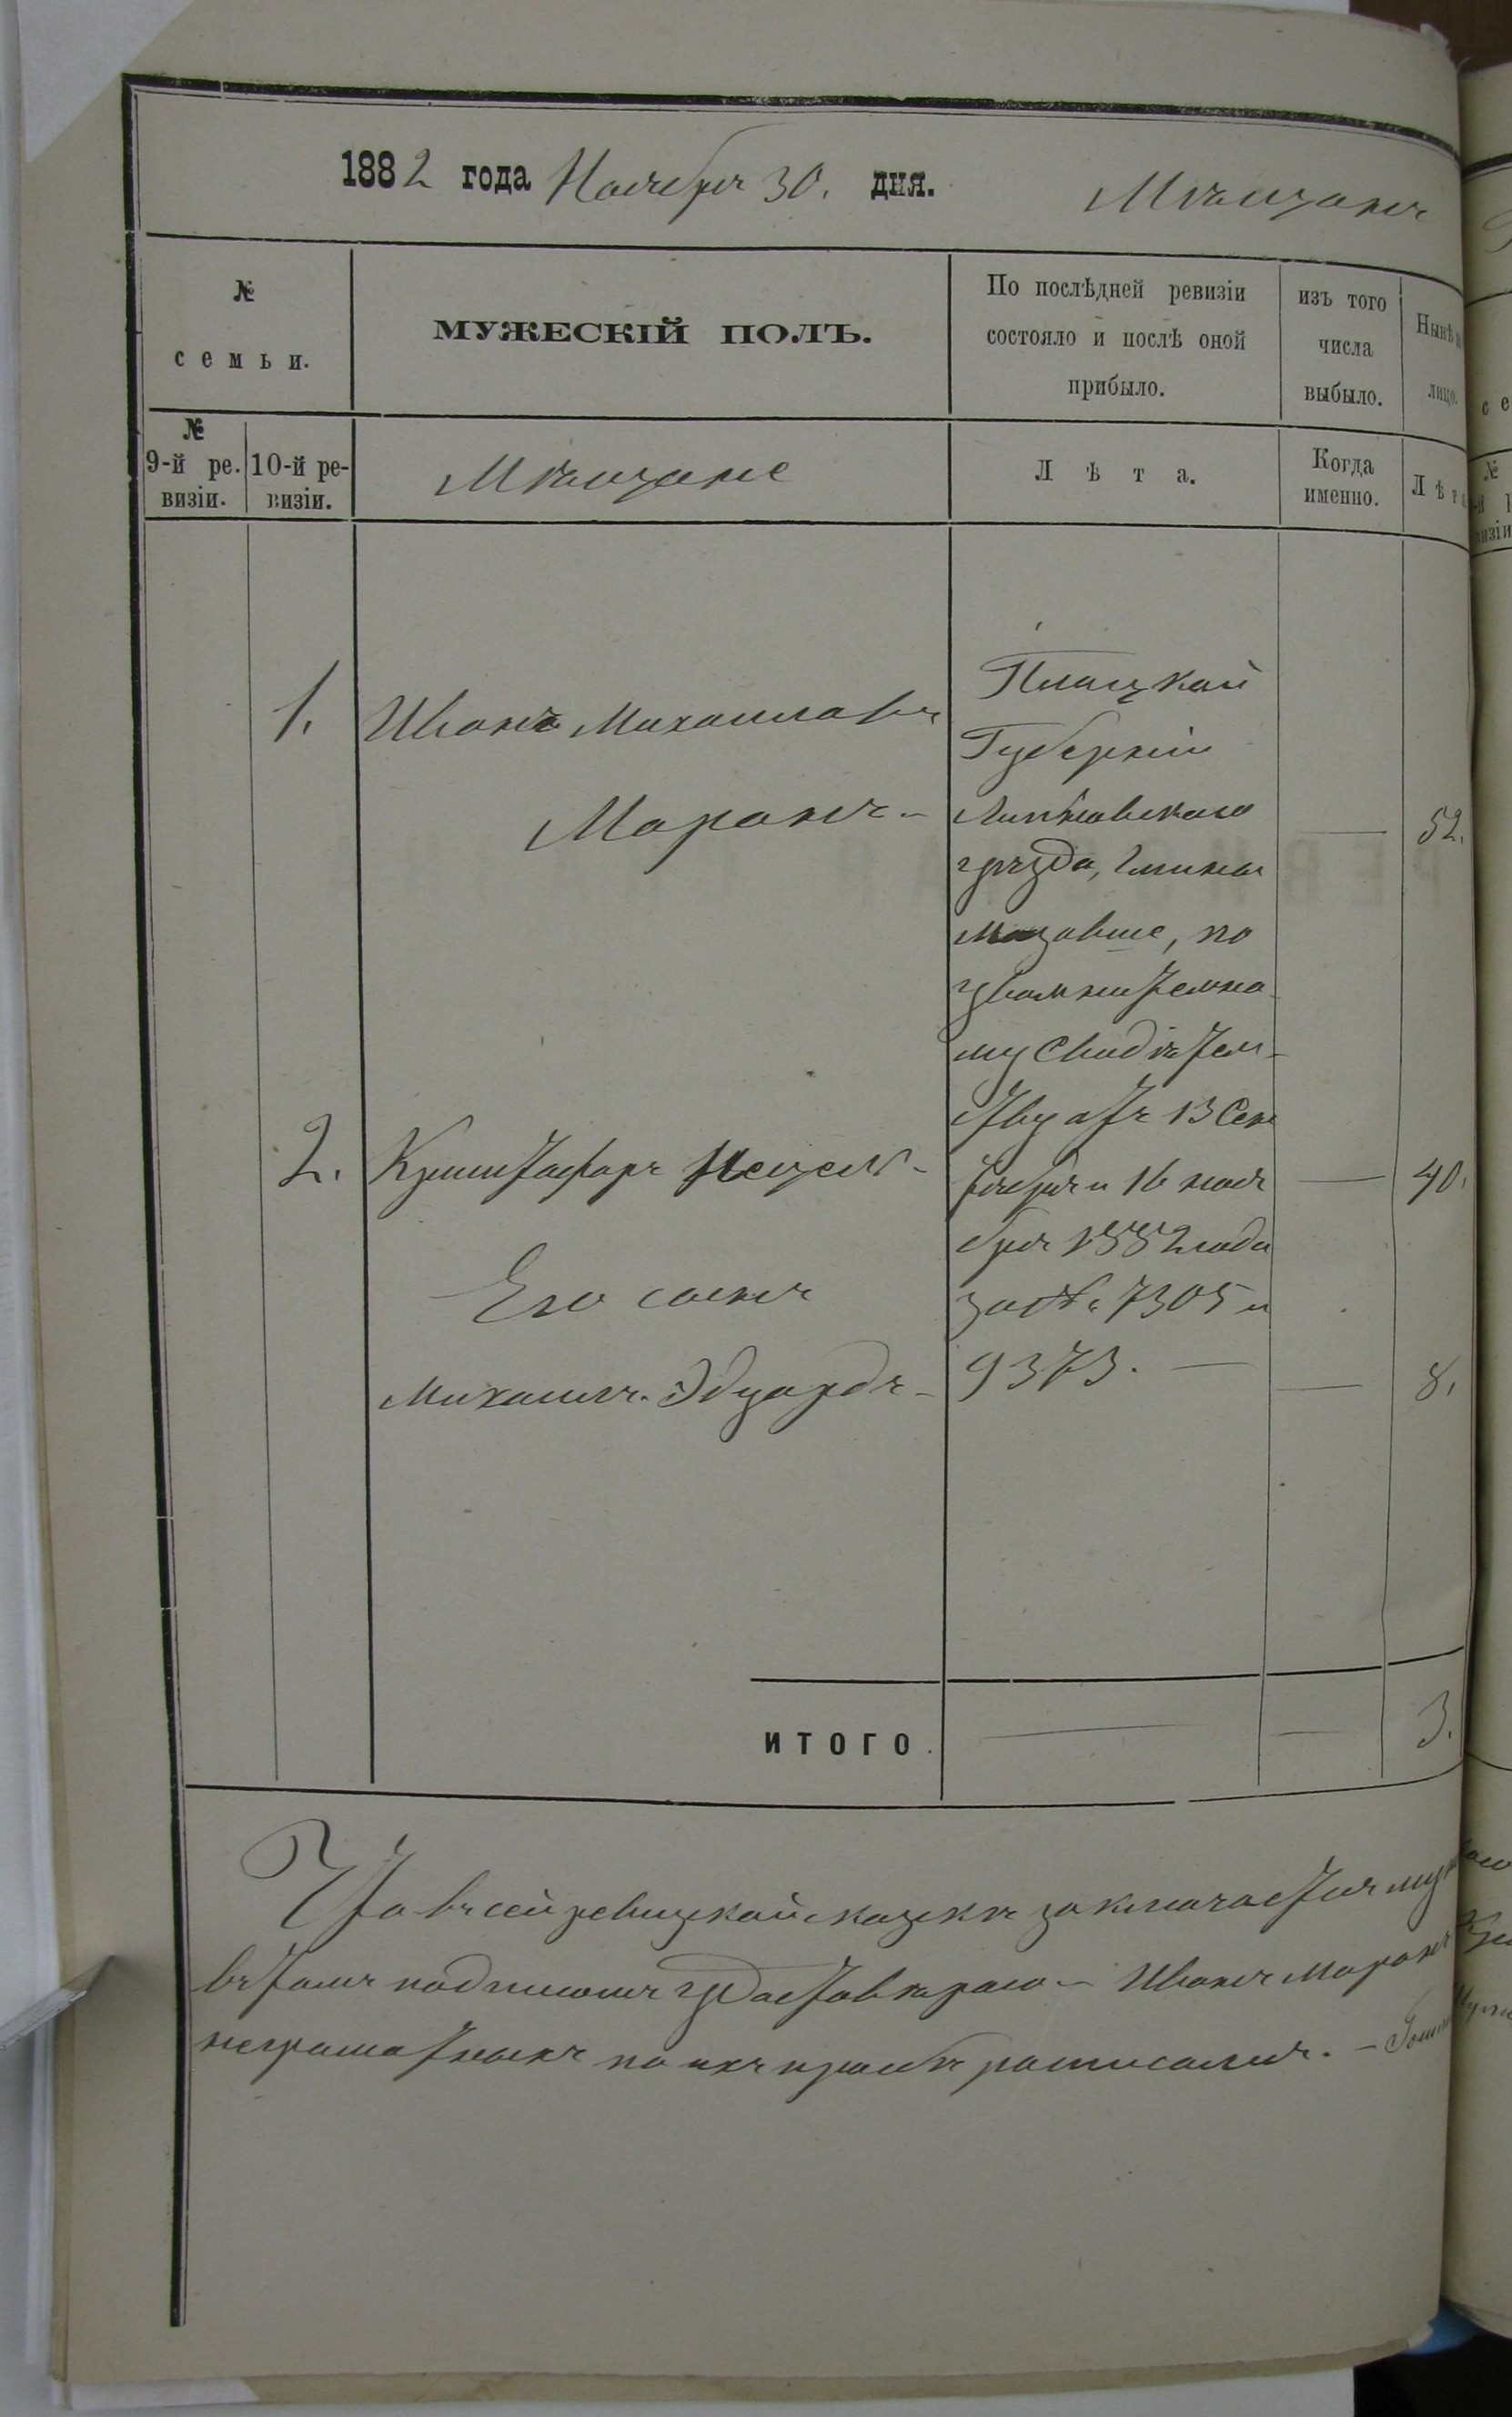 1882 года Ноября 30. дня.
Мѣщанъ
№
семьи.
МУЖЕСКІЙ ПОЛЪ.
По послѣдней ревизіи
состояло и послѣ оной
прибыло.
изъ того
числа
выбыло.
лицо.
№
9-й ре.
визіи.
10-й ре-
визіи.
Мѣщане
Лѣта.
Когда
именно.
1. Иванъ Михаиловъ
Маранъ -
52.
Плоцкой
Губерніи
Липновскаго
уѣзда, Гмины
Мазовше, по
увольнительно-
му Свидѣтель-
ству отъ 13 Сен
тября и 16 ноя
бря 1882 года
за № 7305 и
9373. —
2. Криштофоръ
40.
Его сынъ
Михаилъ-Эдуардъ -
8.
ИТОГО.
3.
Что въ сей ревизской сказкѣ заключается
въ томъ подписомъ удостовѣряю - Иванъ Маранъ
неграмотныхъ по ихъ прозбѣ росписался. -